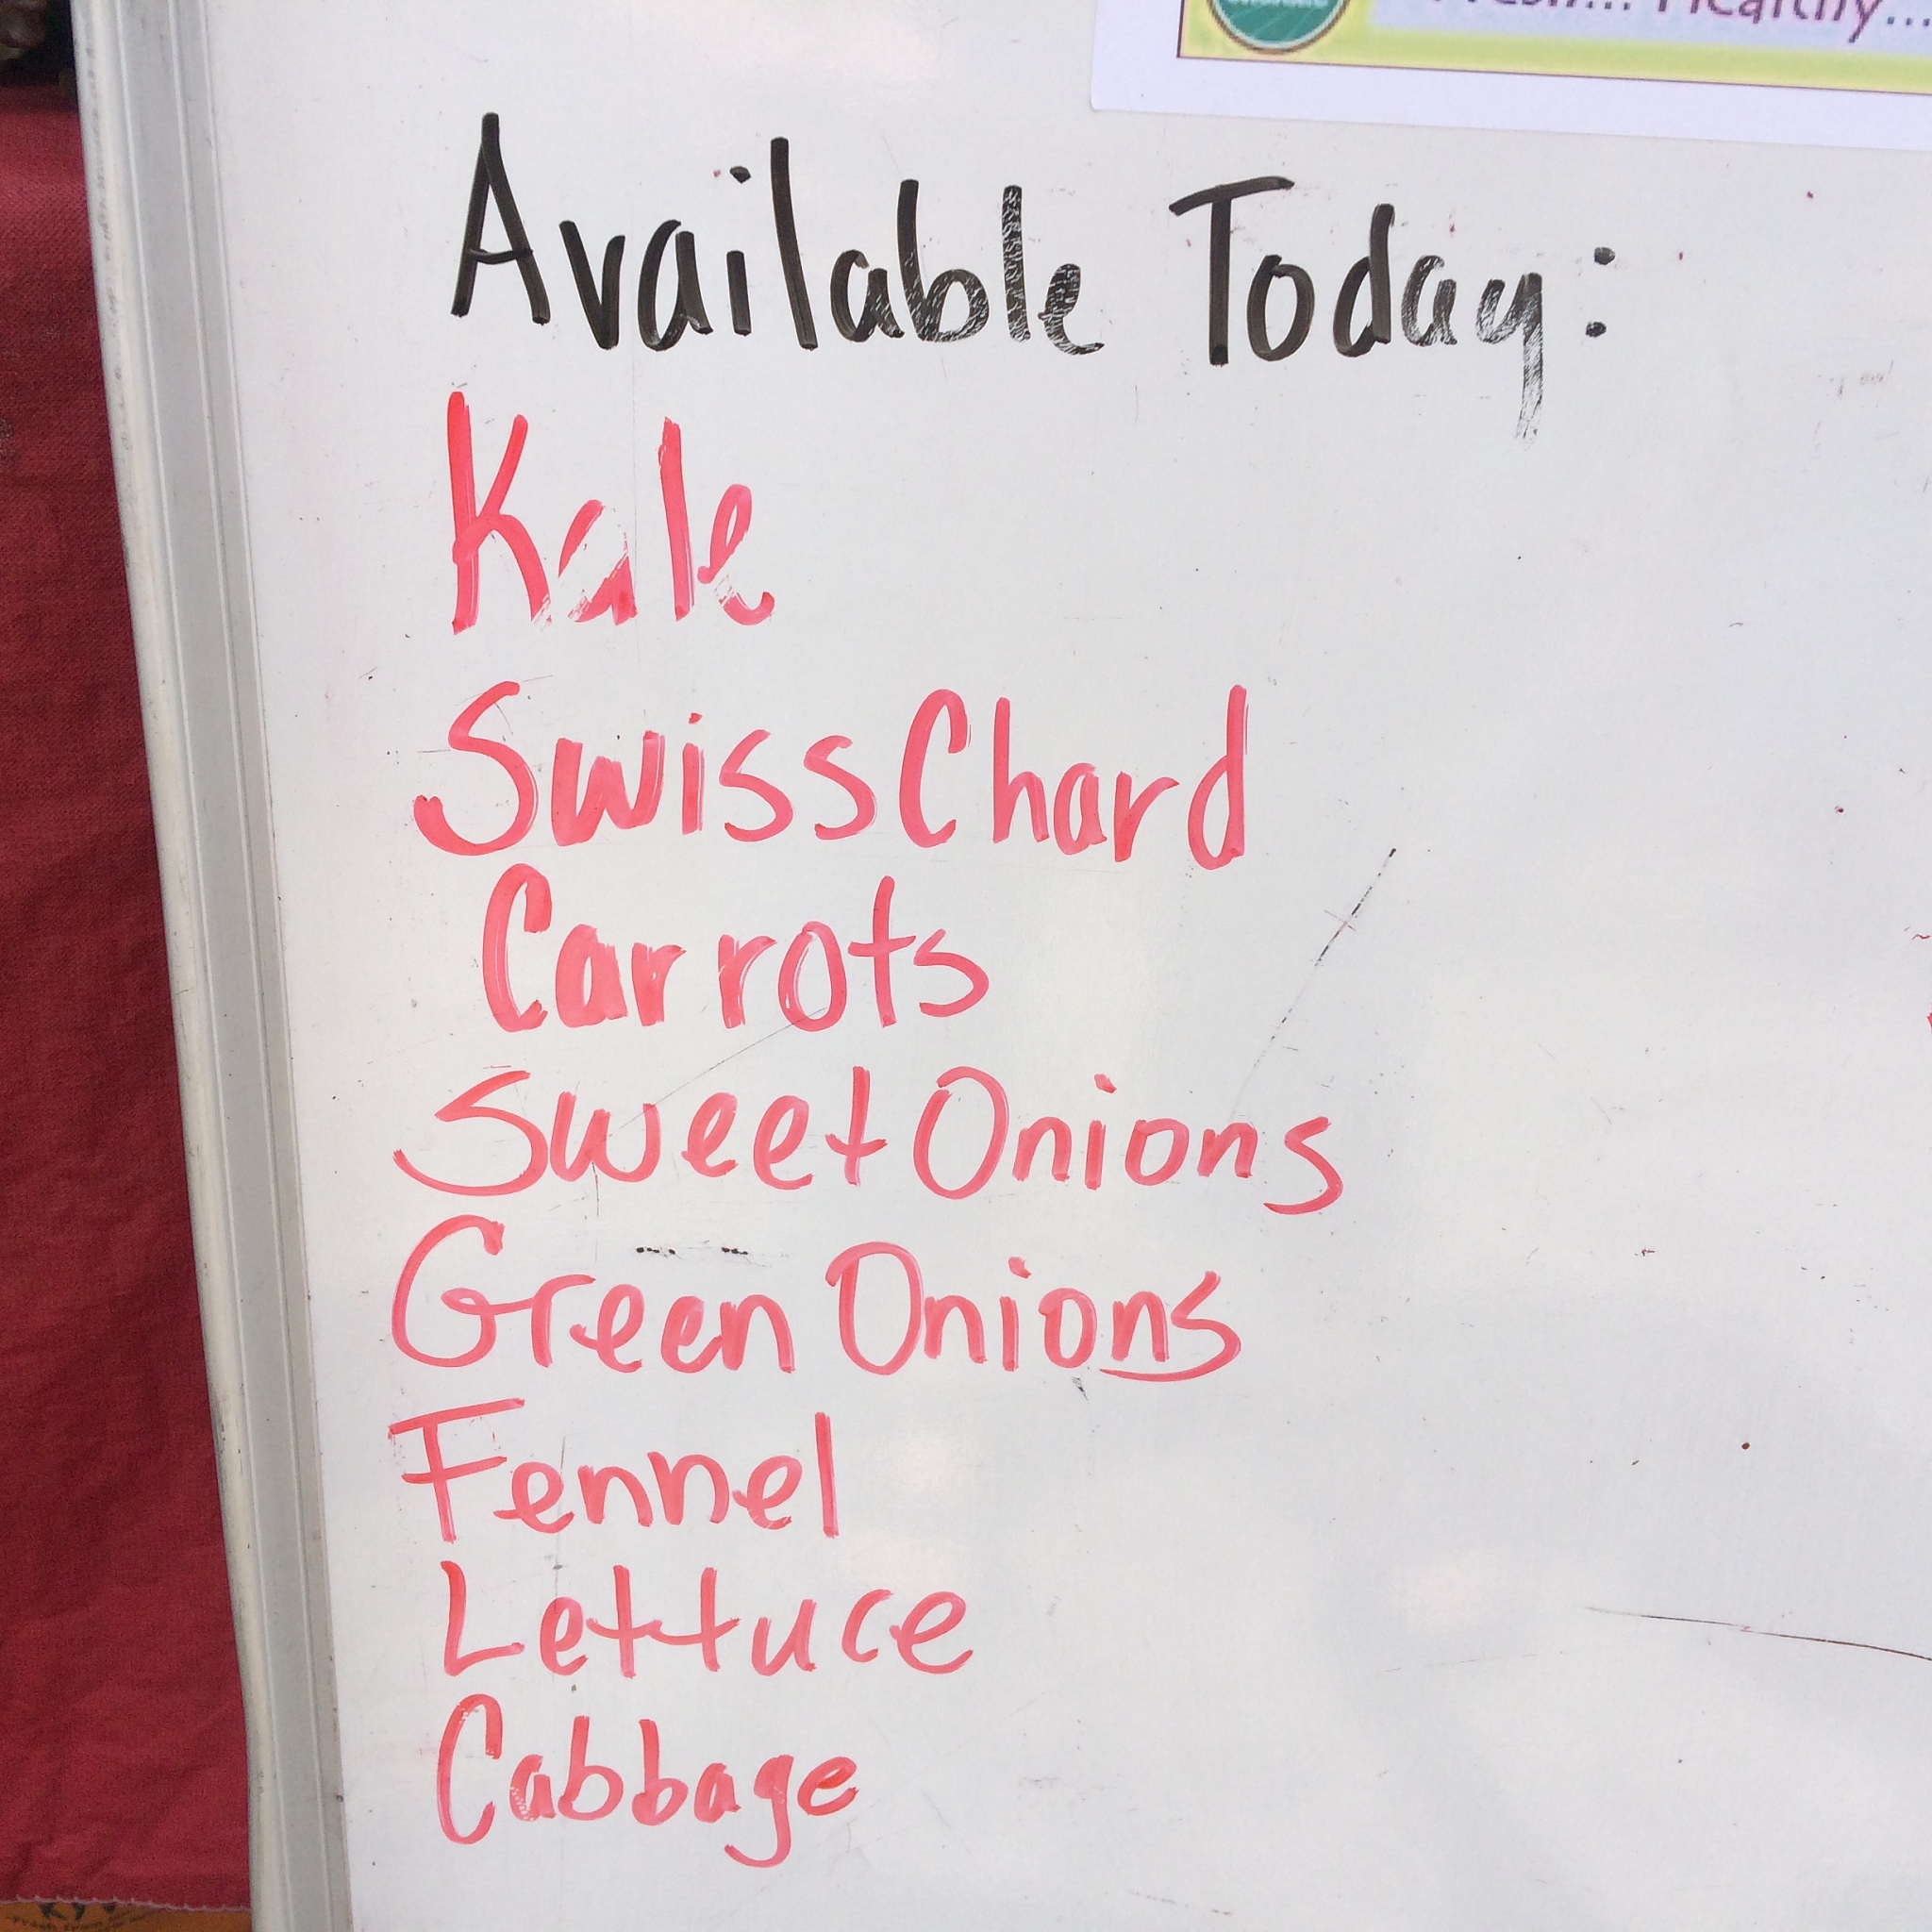 Healthy...
Available Today:
Kale
Swiss Chard
Carrots
Sweet Onions
Green Onions
Fennel
Lettuce
Cabbage